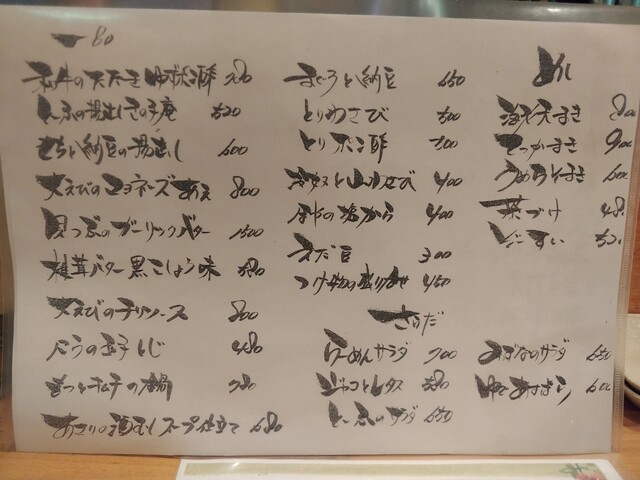 一品
和牛のたたき ゆずポン酢 780
とうふの揚出し きの子庵 520
もちい納豆の揚出し 600
大えびのマヨネーズあえ 800
貝つぶのガーリックバター
椎茸バター黒こしょう味 580
大えびのチリソース 800
にらの玉子とじ 480
もつとキムチの鍋 780
あさりの酒むしスープ仕立て 680
まぐろと納豆 650
とりわさび 500
とりポン酢 500
山わさび 400
塩から 400
えだ豆 300
つけ物の盛り合せ 450
さらだ
らーめんサラダ 700
ジャコとレタス 580
とうふのサラダ 650
めし
海老天まき 800
てっかまき 900
うめしそまき 600
茶づけ 480
ぞーすい 520
サラダ 650
ゆでアスパラ 600